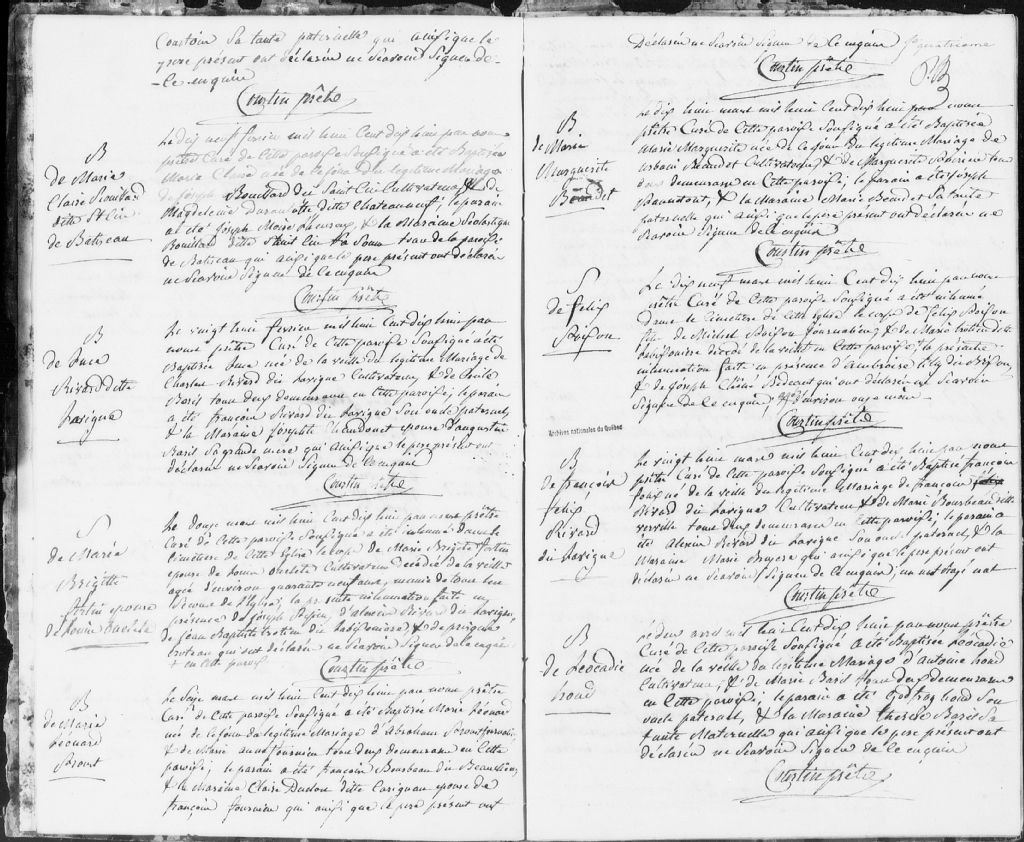 Courtois Sa tante paternelle qui ainsi que le
pere présent ont déclarés ne Scavoir Signer de
-Ce enquis
Courtin prêtre
B
de Marie
Claire Rouillard
ditte St Cir
de Batiscan
Le dix neuf fevrier mil huit Cent dix huit par nous
prêtre Curé de Cette paroisse Soussigné a été Baptisée
Marie Claire née de ce jour du legitime Mariage
de Joseph Rouillard dit Saint Cir Cultivateur, & de
Magdeleine ditte Chateauneuf; le parain
a été Joseph Moïse & la Maraine Scolastique
Rouillard ditte Saint Cir Sa Soeur tous de la paroisse
de Batiscan qui ainsi que le pere présent ont déclarés
ne Scavoir Signer de Ce enquis
Courtin prêtre
B
de Luce
Rivard ditte
Lavigne
Le vingt huit fevrier mil huit Cent dix huit par
nous prêtre Curé de Cette paroisse Soussigné a été
Baptisée Luce née de la veille du legitime Mariage de
Charles Rivard dit Lavigne Cultivateur, & de Cecile
Baril tous deux demeurans en Cette paroisse, le parain
a été françois Rivard dit Lavigne Son oncle paternel,
& la Maraine Josephte Chandonet epouse d'augustin
Baril Sa grande mere qui ainsi que le pere présent ont
déclarés ne Scavoir Signer de Ce enquis
Courtin prêtre
S
de Marie
Brigitte
fortin epouse
de Louis
Le douze mars mil huit Cent dix huit par nous prêtre
Curé de Cette paroisse Soussigné a été inhumé dans le
Cimetiere de Cette Eglise le corps de Marie Brigitte fortin
epouse de Louis Cultivateur décédée de la veille
agée d'environ quarante neuf ans, munie de tous les
Secours de l'Eglise; la présente inhumation faite en
présence de Joseph d'alexis Rivard dit Lavigne,
de Jean Baptiste trotier dit & de
trotier qui ont déclarés ne Scavoir Signer de Ce enquis
+ en Cette paroisse
Courtin prêtre
B
de Marie
Léonard
Le Seize mars mil huit Cent dix huit par nous prêtre
Curé de Cette paroisse Soussigné a été Baptisée Marie
née de ce jour du legitime Mariage d'Abraham
& de Marie anne fournier tous deux demeurans en Cette
paroisse; le parain a été françois Bourbeau dit Beauchene,
& la maraine Claire Duclos ditte Carignan epouse de
françois fournier qui ainsi que le pere présent ont
déclarés ne Scavoir Signer de Ce enquis
quatrieme
Courtin prêtre
P.B
B
de Marie
Marguerite
Beaudet
Le dix huit mars mil huit Cent dix huit par nous
prêtre Curé de Cette paroisse Soussigné a été Baptisée
Marie Marguerite née de ce jour du legitime Mariage de
Urbain Beaudet Cultivateur, & de Marguerite tous
deux demeurans en Cette paroisse; le parain a été Joseph
& la Maraine Marie Beaudet Sa tante
paternelle qui ainsi que le pere présent ont déclarés ne
Scavoir Signer de Ce enquis
Courtin prêtre
S
de felix
Boisson
Le dix neuf mars mil huit Cent dix huit par nous
prêtre Curé de Cette paroisse Soussigné a été inhumé
dans le Cimetiere de Cette Eglise le corps de felix Boisson
fils de Michel Boisson Journalier, & de Marie trotier ditte
décédé de la veille en Cette paroisse; la présente
inhumation faite en présence d'Ambroise
& de Joseph Bedeau qui ont déclarés ne Scavoir
Signer de Ce enquis, agé d'environ onze mois
Courtin prêtre
Archives nationales du Québec
B
de françois
felix
Rivard
dit Lavigne
Le vingt huit mars mil huit Cent dix huit par nous
prêtre Curé de Cette paroisse Soussigné a été Baptisé françois
né de la veille du legitime Mariage de françois
Rivard dit Lavigne Cultivateur & de Marie Bourbeau ditte
verville tous deux demeurans en Cette paroisse, le parain a
été Alexis Rivard dit Lavigne Son oncle paternel, & la
Maraine Marie qui ainsi que le pere présent ont
déclarés ne Scavoir Signer de Ce enquis, un mot rayé nul
Courtin prêtre
B
de Leocadie
houd
Le deux avril mil huit Cent dix huit par nous prêtre
Curé de Cette paroisse Soussigné a été Baptisée Leocadie
née de la veille du legitime Mariage d'Antoine houd
Cultivateur, & de Marie Baril tous deux demeurans
en Cette paroisse, le parain a été Godfroy houd Son
oncle paternel, & la Maraine therese Baril Sa
tante Maternelle qui ainsi que le pere présent ont
déclarés ne Scavoir Signer de Ce enquis
Courtin prêtre